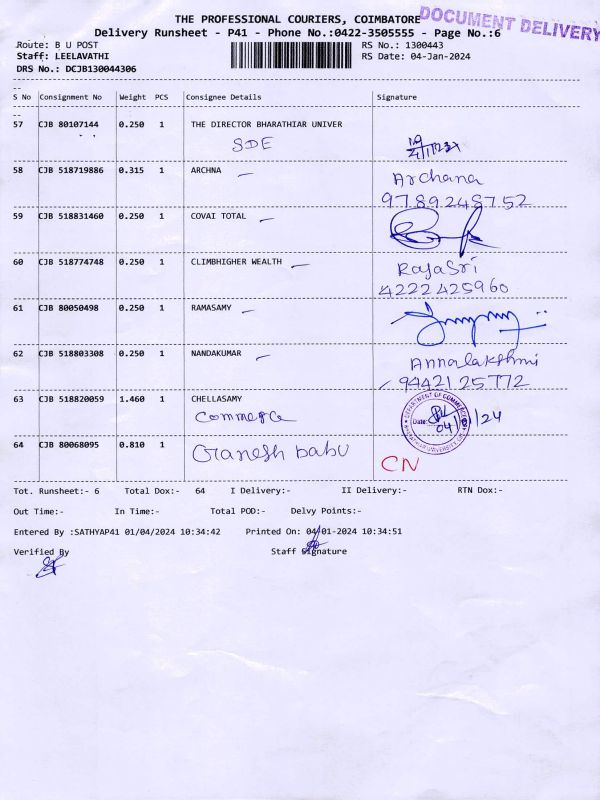 THE PROFESSIONAL COURIERS, COIMBATORE
DOCUMENT DELIVERY
Delivery Runsheet - P41 - Phone No.:0422-3505555 - Page No.:6
Route: B U POST
RS No.: 1300443
Staff: LEELAVATHI
RS Date: 04-Jan-2024
DRS No.: DCJB130044306
S No Consignment No Weight PCS Consignee Details Signature
57 CJB 80107144 0.250 1 THE DIRECTOR BHARATHIAR UNIVER
SDE
58 CJB 518719886 0.315 1 ARCHNA
Archana
9789248752
59 CJB 518831460 0.250 1 COVAI TOTAL
60 CJB 518774748 0.250 1 CLIMBHIGHER WEALTH
RajaSri
4222425960
61 CJB 80050498 0.250 1 RAMASAMY
62 CJB 518803308 0.250 1 NANDAKUMAR
Annalakshmi
9442125772
63 CJB 518820059 1.460 1 CHELLASAMY
Commerce
DEPARTMENT OF COMMERCE
Date:
64 CJB 80068095 0.810 1 Ganesh babu
CN
Tot. Runsheet:- 6 Total Dox:- 64 I Delivery:- II Delivery:- RTN Dox:-
Out Time:- In Time:- Total POD:- Delvy Points:-
Entered By :SATHYAP41 01/04/2024 10:34:42 Printed On: 04-01-2024 10:34:51
Verified By Staff Signature